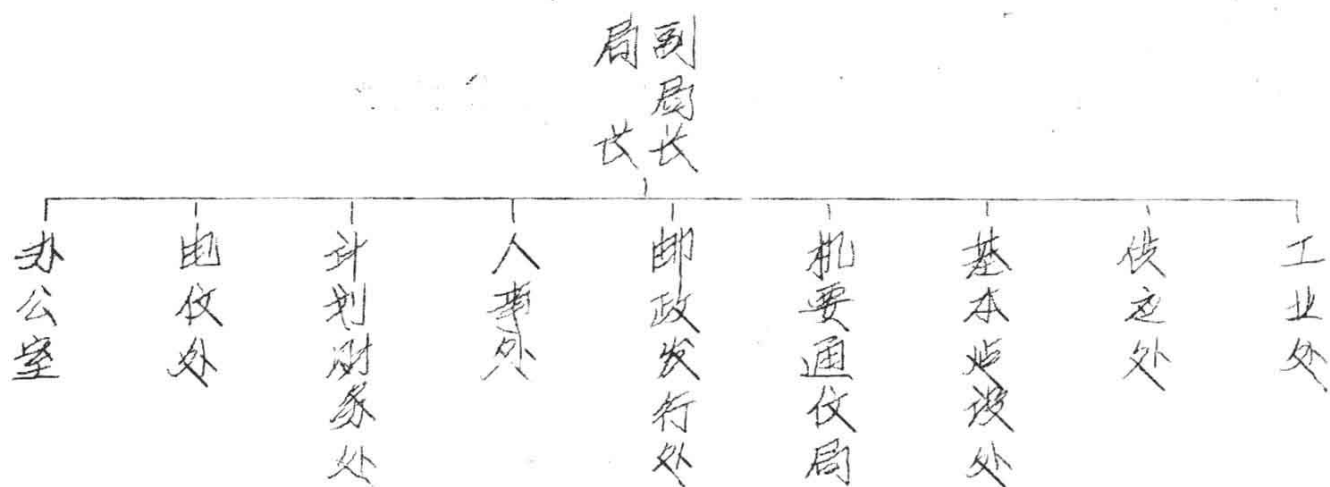 局长
副局长
办公室
电仪处
计划财务处
人事处
邮政发行处
机要通仪局
基本建设处
供应处
工业处